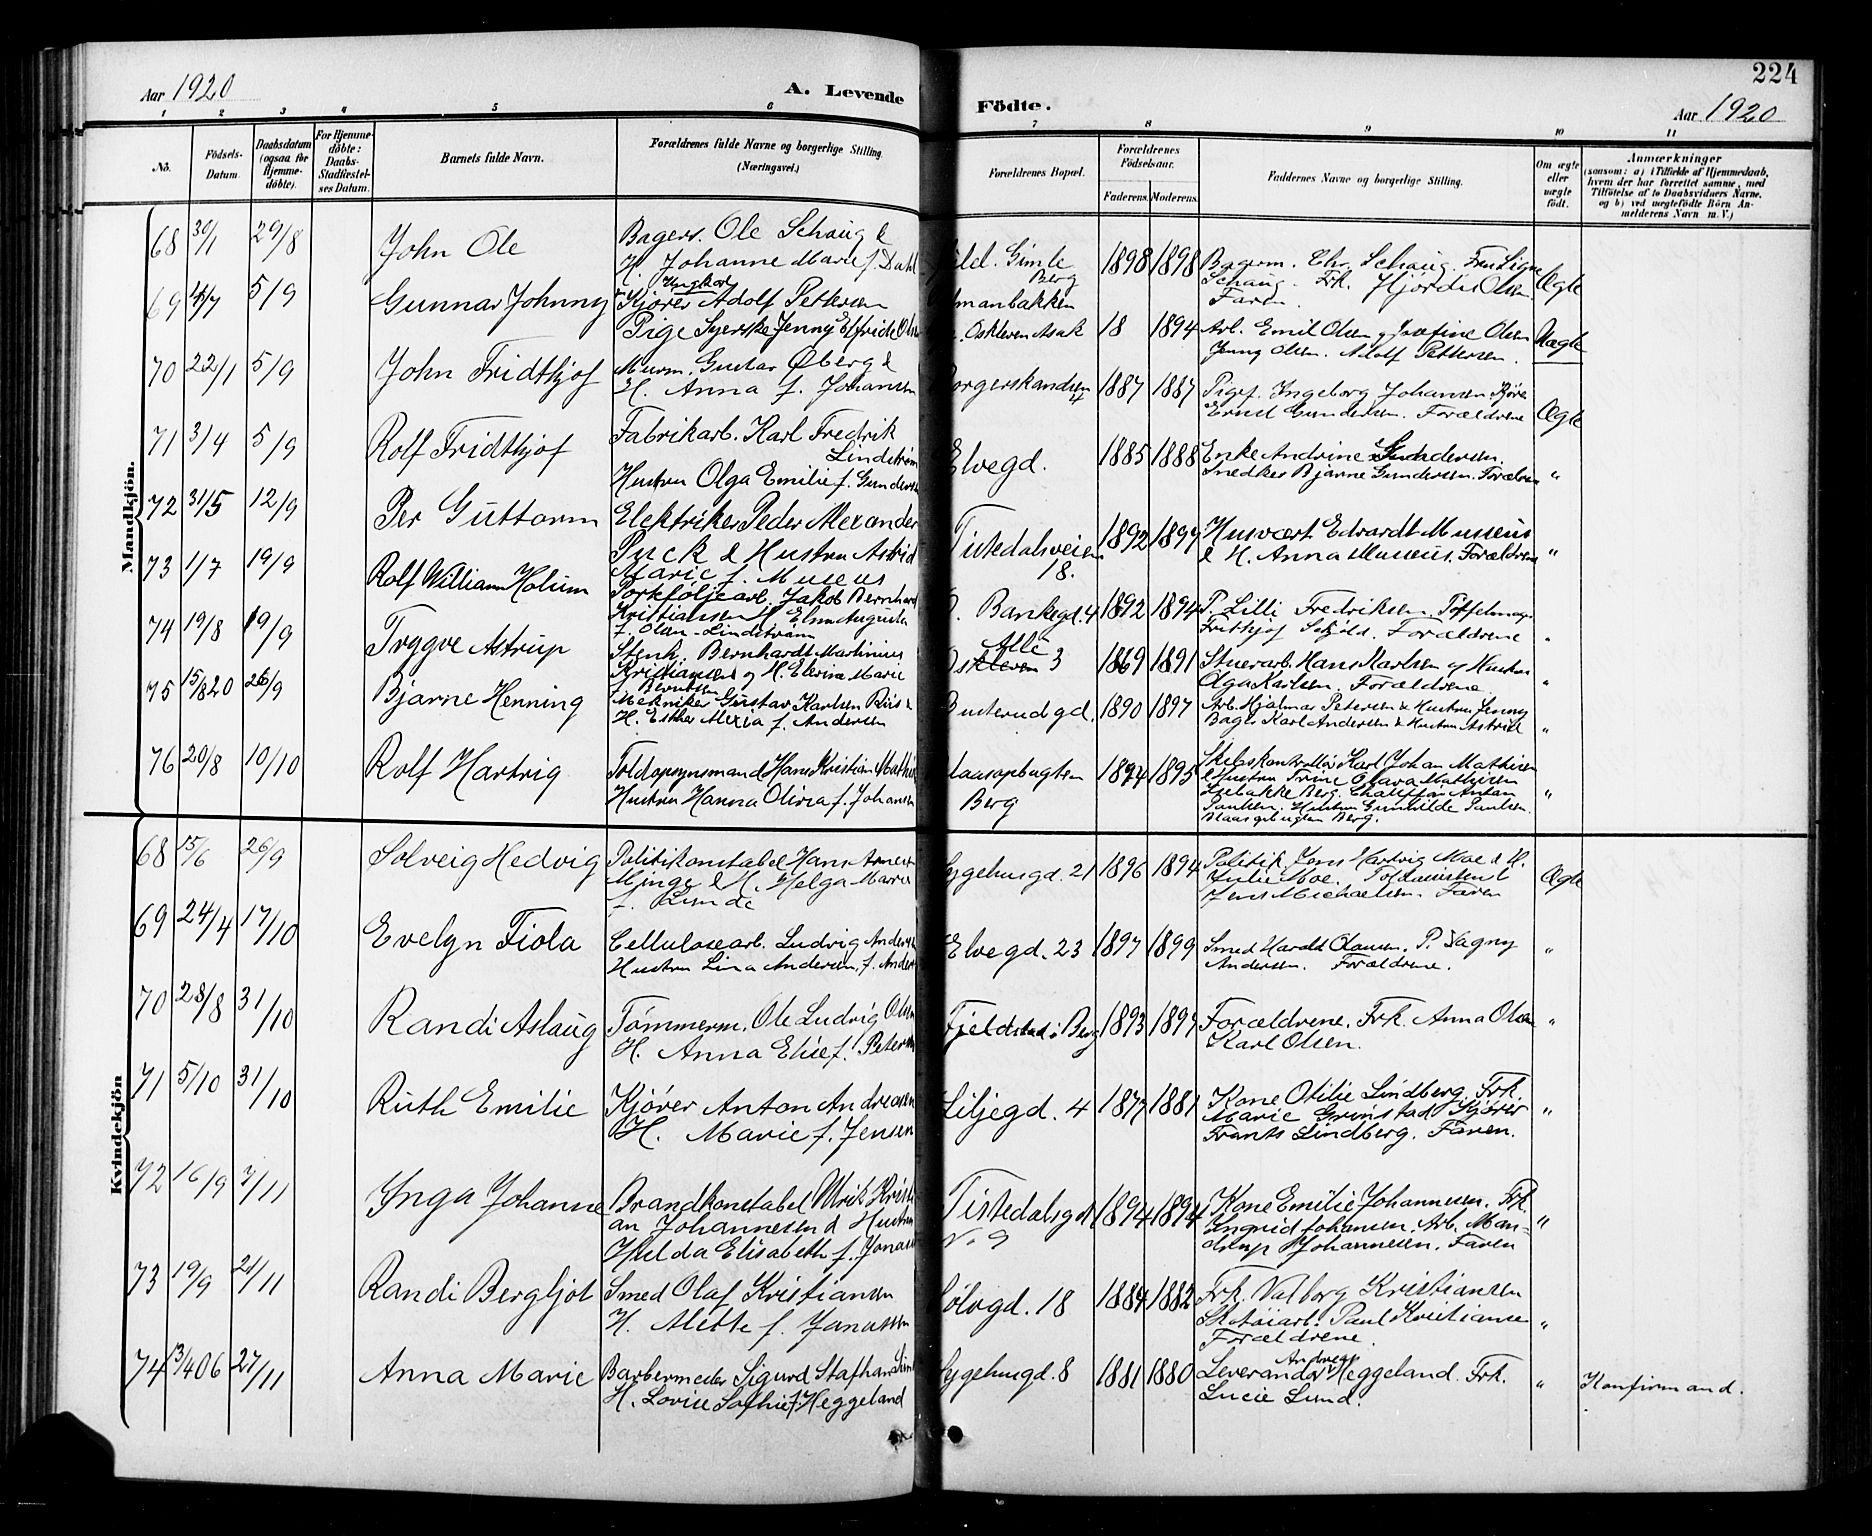 224
Aar 1920
A. Levende
Födte.
Aar 1920
1 2 3 4 5 6 7 8 9 10 11
No.
Födsels-
Datum.
Daabsdatum
(ogsaa for
Hjemme-
döbte).
For Hjemme-
döbte:
Daabs-
Stadfæstel-
ses Datum.
Barnets fulde Navn.
Forældrenes fulde Navne og borgerlige Stilling
(Næringsvei.)
Forældrenes Bopæl.
Forældrenes
Födselsaar.
Faderens. Moderens.
Faddernes Navne og borgerlige Stilling.
Om ægte
eller
uægte
født.
Anmærkninger
(saasom: a) i Tilfælde af Hjemmedaab,
hvem der har forrettet samme, med
Tilföielse af to Daabsvidners Navne,
og b) ved uægtefödte Börn An-
melderens Navn m. V.)
Mandkjön.
68 30/1 29/8 John Ole
Bagers. Ole Schaug &
H. Johanne Marie f. Dahl
ild. Gimle
Berg
1898 1898
Bagerm. Chr. Schaug. Fru Signe
Schaug. Frk. Hjördis Olsen
Faren.
Ægte
69 5/9 Gunnar Johnny
Ungkar
Kjører Adolf Pettersen
Pige Syerske Jenny Elfride Olsen
manbakken
Oskleven Asak
18 1894
Arb. Emil Olsen g Josefine Olsen
Jenny Olsen. Adolf Pettersen.
Uægte
70 22/1 5/9 John Fridthjof
Murm. Gustav Øberg &
H. Anna f. Johansen
orgerskandsen
1887 1887
Pige Ingeborg Johansen Kjører
Ernst Gundersen. Forældrene
Ægte
71 3/4 5/9 Rolf Fridthjof
Fabrikarb. Karl Fredrik
Lindstrøm
Hustru Olga Emilie f. Gunders
Elvegd.
1885 1888
Enke Andrine Gundersen.
Snedker Bjarne Gundersen. Forældrene
"
72 31/5 12/9 Per Guttorm
Elektriker Peder Alexander
Puck & Hustru Astrid
Marie f. Museus
Tistedalsveien
18.
1892 1897
Husvært Edvardt Museus
& H. Anna Museus. Forældrene
"
73 1/7 19/9 Rolf William Holum
Porteføljearb. Jakob Bernhard
Kristiansen H. Elna Augusta
f. Olsen-Lindstrøm
Bankegd. 4
1892 1894
P. Lilli Fredriksen. Tøffelmager
Frithjof Schjøld. Forældrene
"
74 19/8 19/9 Trygve Astrup
Stenh. Bernhardt Martinius
Kristiansen og H. Elvine Marie
Berntsen
Alle
Oskleven 3
1869 1891
Stuerarb. Hans Karlsen og Hustru
Olga Karlsen. Forældrene
"
75 15/8 20 26/9 Bjarne Henning
Mekniker Gustav Karlsen Riis &
H. Esther Alexia f. Andersen
Busterudgd.
1890 1897
Arb. Hjalmar Petersen & Hustru Jenny
Bager Karl Andersen & Hustru Astrid
"
76 20/8 10/10 Rolf Hartvig
Toldopsynsmand Hans Kristian Mathis
Hustru Hanna Olivia f. Johansen
laasopbugten
Berg
1894 1895
Karl Johan Mathisen
& Hustru Trine Olava Mathisen
Isebakke Berg. Anton
Paulsen. Hustru Gunhilde Paulsen
Blaasopbugten Berg.
"
Kvindekjön
68 15/6 26/9 Solveig Hedvig
Politikonstabel Hans Arnest
Minge & H. Helga Marie
f. Lunde
Sygehusgd. 21
1896 1894
Politik. Jens Hartvig Moe & H.
Julie Moe. Toldassistent
Jens Michaelsen. Faren
Ægte
69 24/4 17/10 Evelyn Fiola
Cellulosearb. Ludvig Anders
Hustru Lina Andersen, f. Anders
Elvegd. 23
1897 1899
Smed Harald Olausen. P. Dagny
Andersen. Forældrene.
"
70 28/8 31/10 Randi Aslaug
Tømmerm. Ole Ludvig Olsen
H. Anna Elise f. Petersen
Fjeldstad i Berg
1893 1897
Forældrene. Frk. Anna Olsen
Karl Olsen.
"
71 5/10 31/10 Ruth Emilie
Kjører Anton Andreassen
H. Marie f. Jensen
Liljegd. 4
1877 1881
Kone Otilie Lindberg. Frk.
Marie Grimstad Kjører
Frants Lindberg. Faren.
"
72 16/9 7/11 Ynga Johanne
Brandkonstabel Ulrik Kristi
an Johannesen & Hustru
Hilda Elisabeth f. Jonass
Tistedalsgd
No 9
1894 1894
Kone Emilie Johannesen. Frk.
Ingrid Johansen. Arb. Man-
drup Johannesen. Faren
"
73 19/9 21/11 Randi Bergljot
Smed Olaf Kristiansen
H. Alette f. Jonassen
Sölvgd. 18
1884 1882
Frk. Valborg Kristiansen
Skotøiarb. Paul Kristiansen
Forældrene.
"
74 13/4 06 27/11 Anna Marie
Barbermester Sigurd Staffhan Lund
H. Lovise Sofhie f. Heggeland
Sygehusgd. 8
1881 1880
Andreas
Leverandør Heggeland. Frk.
Lucie Lund.
"
Konfirmand.